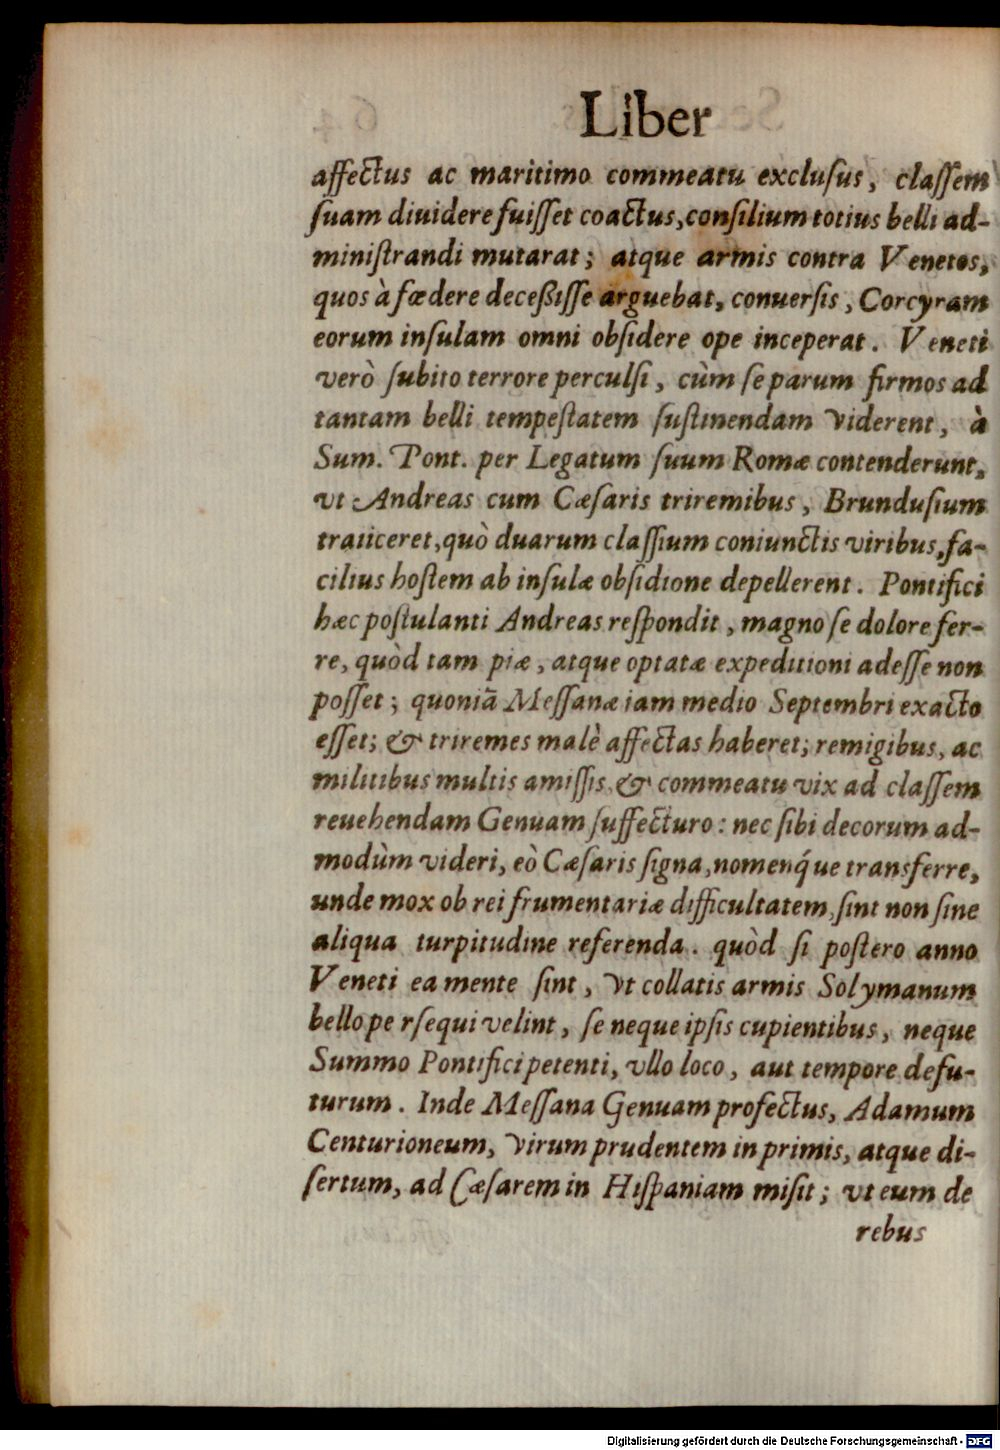 Liber
affectus ac maritimo commeatu exclusus, classem
suam diuidere fuisset coactus, consilium totius belli ad-
ministrandi mutarat; atque armis contra Venetos,
quos à fœdere decessisse arguebat, conuersis, Corcyram
eorum insulam omni obsidere ope inceperat. Veneti
verò subito terrore perculsi, cùm se parum firmos ad
tantam belli tempestatem sustinendam viderent, à
Sum. Pont. per Legatum suum Romæ contenderunt,
vt Andreas cum Cæsaris triremibus, Brundusium
traiiceret, quò duarum classium coniunctis viribus, fa-
cilius hostem ab insulæ obsidione depellerent. Pontifici
hæc postulanti Andreas respondit, magno se dolore fer-
re, quòd tam piæ, atque optatæ expeditioni adesse non
posset; quoniã Messanæ iam medio Septembri exacto
esset; & triremes malè affectas haberet; remigibus, ac
militibus multis amissis, & commeatu vix ad classem
reuehendam Genuam suffecturo: nec sibi decorum ad-
modùm videri, eò Cæsaris signa, nomenq́ue transferre,
unde mox ob rei frumentariæ difficultatem, sint non sine
aliqua turpitudine referenda. quòd si postero anno
Veneti ea mente sint, vt collatis armis Solymanum
bello persequi velint, se neque ipsis cupientibus, neque
Summo Pontifici petenti, vllo loco, aut tempore defu-
turum. Inde Messana Genuam profectus, Adamum
Centurioneum, virum prudentem in primis, atque di-
sertum, ad Cæsarem in Hispaniam misit; vt eum de
rebus
Digitalisierung gefördert durch die Deutsche Forschungsgemeinschaft - DFG